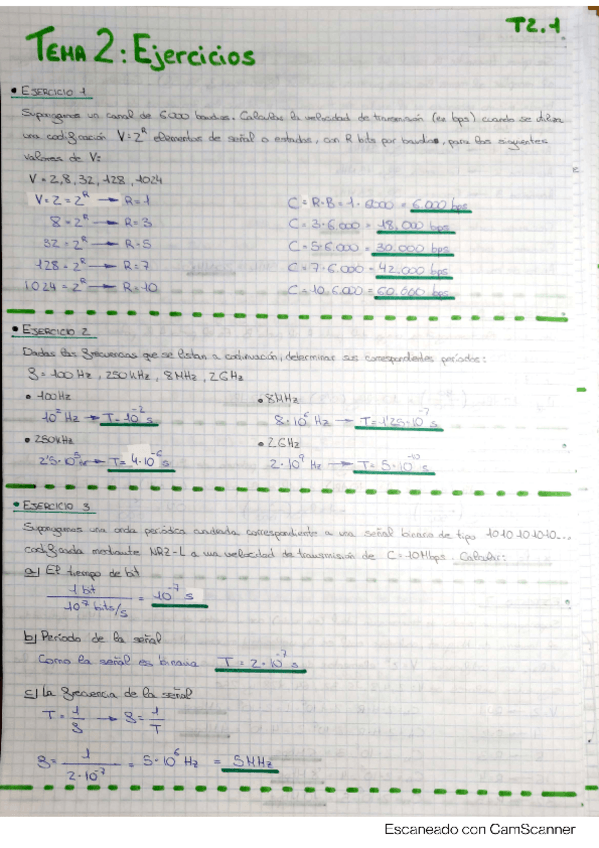 T2.1
TEMA 2: Ejercicios
• EJERCICIO 1
Supongamos un canal de 6000 baudios. Calcular la velocidad de transmisión (en bps) cuando se utiliza
una codificación V=2^R elementos de señal o entradas, con R bits por baudios, para los siguientes
valores de V:
V = 2, 8, 32, 128, 1024
V = 2 = 2^R → R = 1 C = R·B = 1·6000 = 6.000 bps
8 = 2^R → R = 3 C = 3·6.000 = 18.000 bps
32 = 2^R → R = 5 C = 5·6.000 = 30.000 bps
128 = 2^R → R = 7 C = 7·6.000 = 42.000 bps
1024 = 2^R → R = 10 C = 10·6.000 = 60.000 bps
• EJERCICIO 2
Dadas las frecuencias que se listan a continuación, determinar sus correspondientes períodos:
f = 100 Hz, 250 kHz, 8 MHz, 2 GHz
• 100 Hz • 8 MHz
10^2 Hz → T = 10^-2 s 8·10^6 Hz → T = 1'25·10^-7 s
• 250 kHz • 2 GHz
2'5·10^5 Hz → T = 4·10^-6 s 2·10^9 Hz → T = 5·10^-10 s
• EJERCICIO 3
Supongamos una onda periódica cuadrada correspondiente a una señal binaria de tipo 1010101010...
codificada mediante NRZ-L a una velocidad de transmisión de C = 10 Mbps. Calcular:
a) El tiempo de bit
1 bit / 10^7 bits/s = 10^-7 s
b) Período de la señal
Como la señal es binaria T = 2·10^-7 s
c) La frecuencia de la señal
T = 1/f → f = 1/T
f = 1 / 2·10^-7 = 5·10^6 Hz = 5 MHz
Escaneado con CamScanner